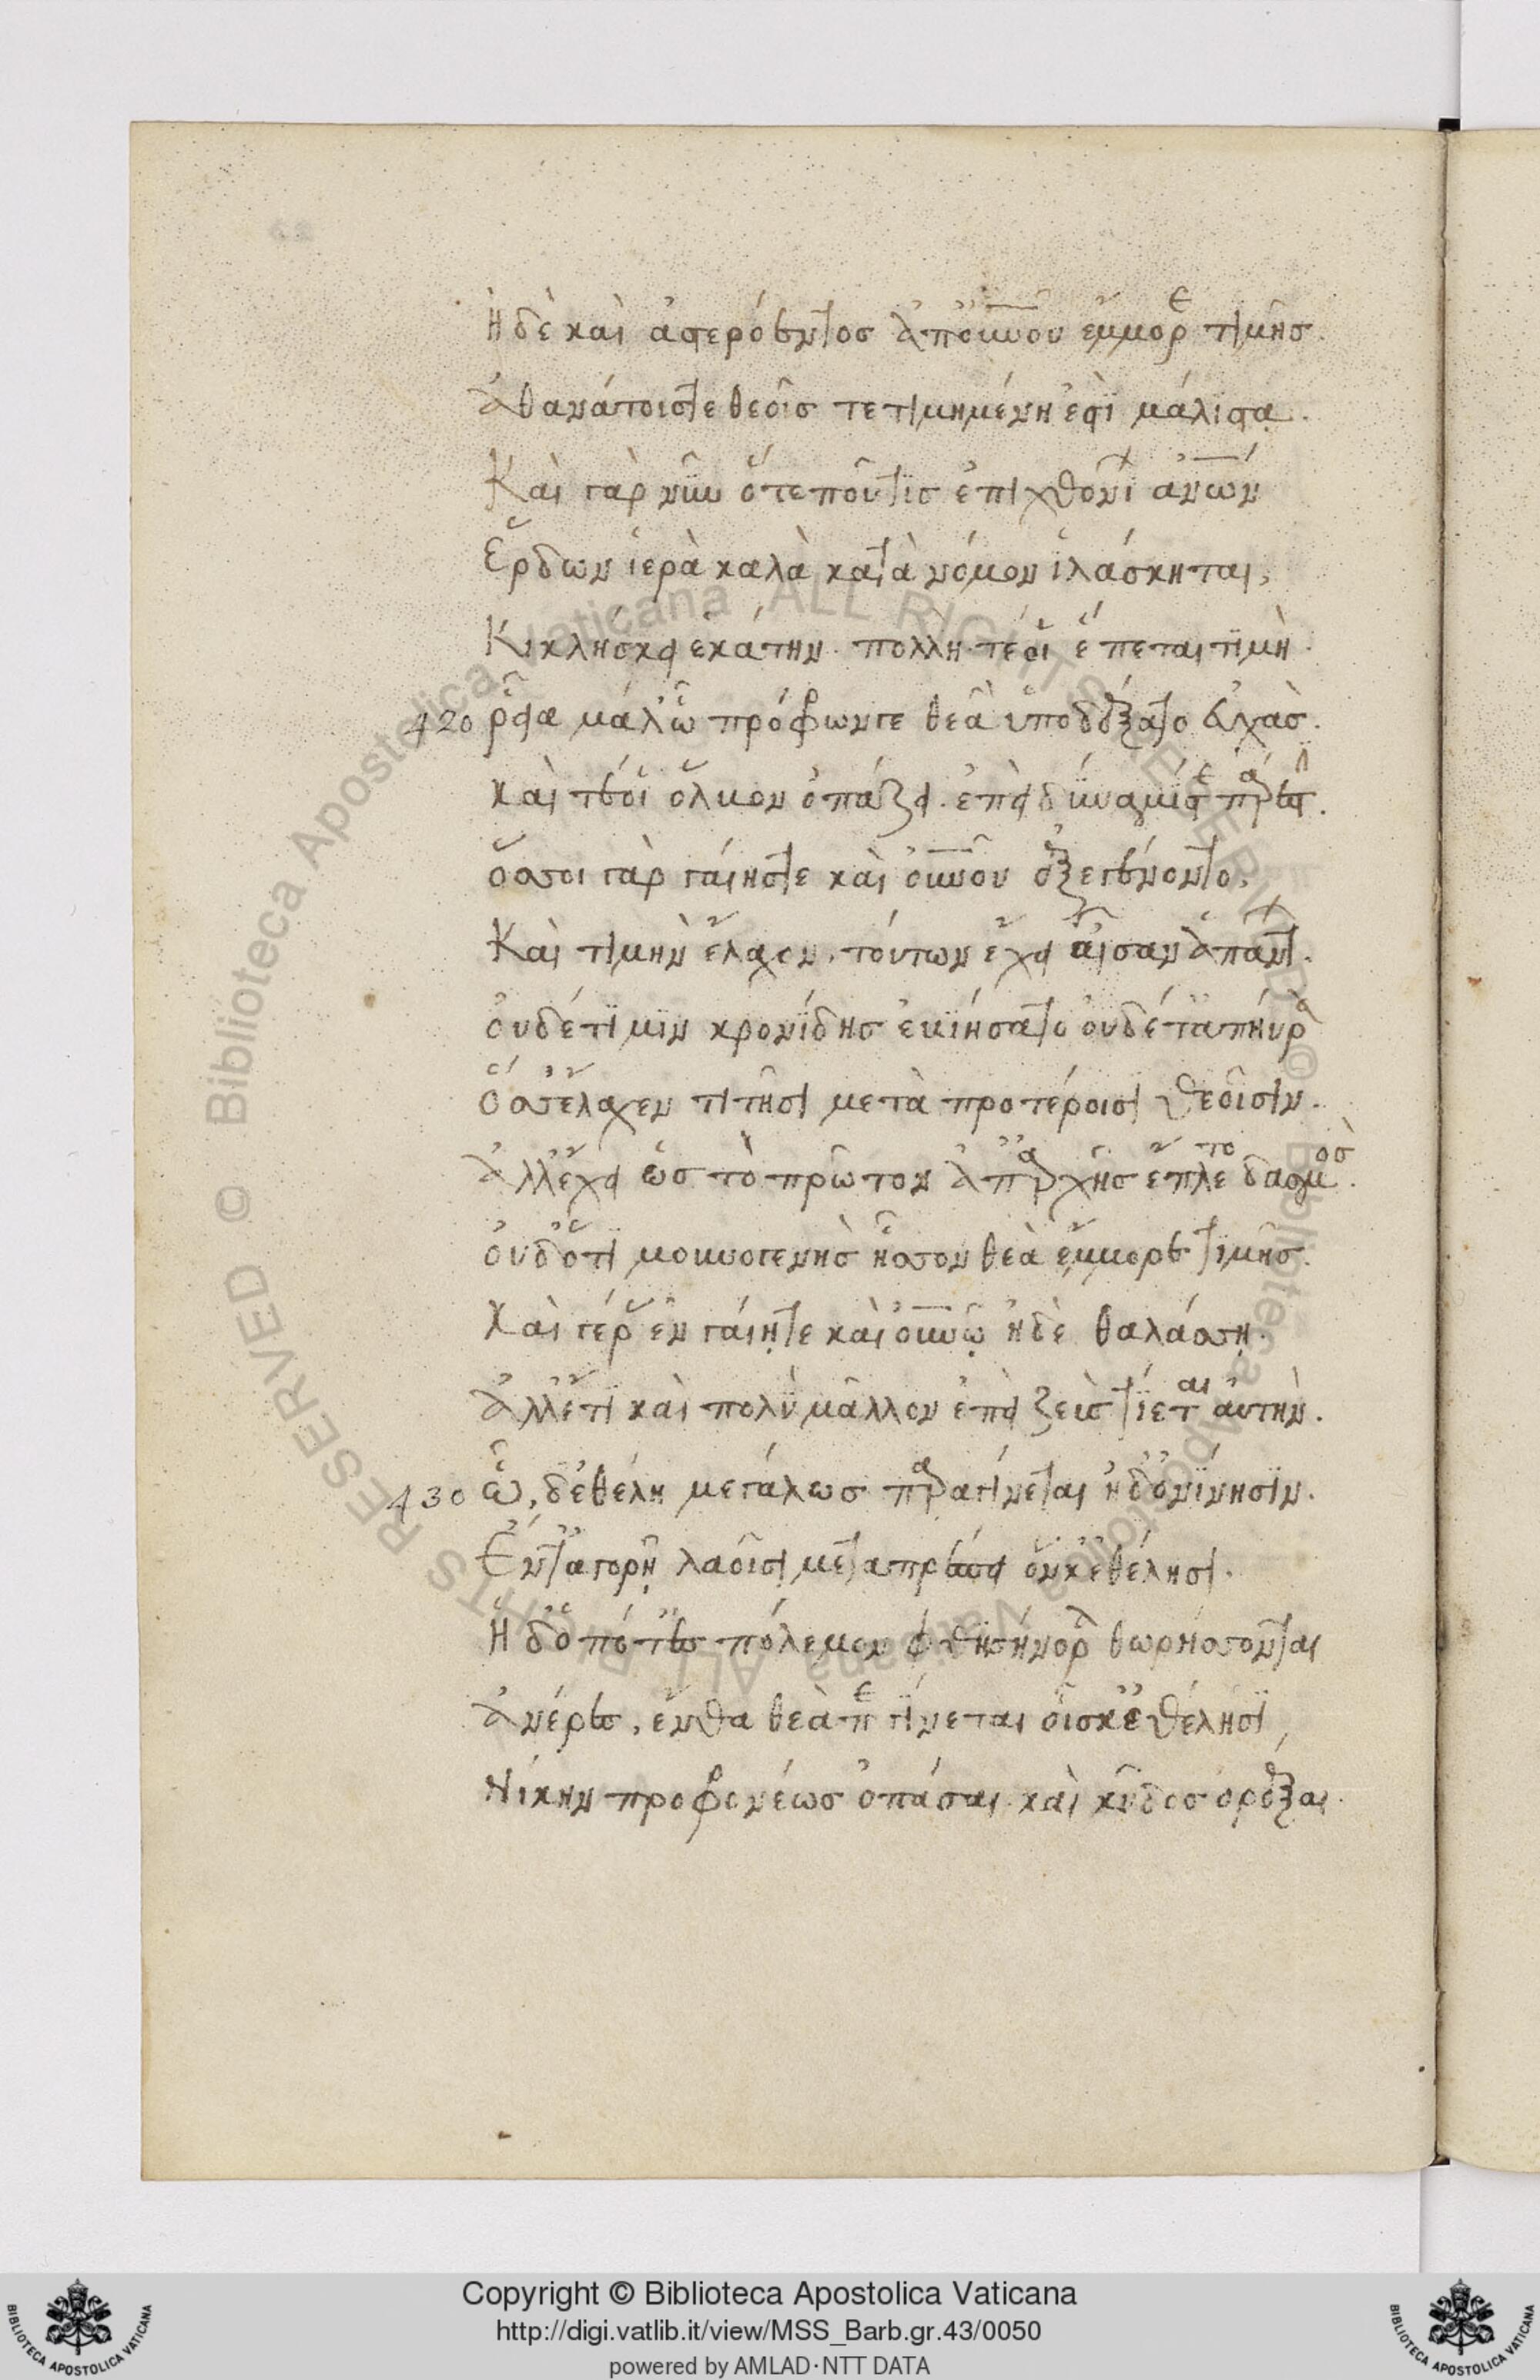 Ἡ δὲ καὶ ἀστερόεντοσ ἀπ' οὐνοῦ ἔμμορε τιμῆσ.
Ἀθανάτοισί τε θεοῖσ τετιμημένη ἐστὶ μάλιστα.
Καὶ γὰρ νῦν ὅτε πού τισ ἐπιχθονίων ἀνων
Ἔρδων ἱερὰ καλὰ κατὰ νόμον ἱλάσκηται,
Κικλήσκει ἑκάτην. πολλή τέ οἱ ἕπεται τιμὴ.
420 ῥεῖα μάλ' ὧ πρόφρων γε θεὰ ὑποδέξαται εὐχὰσ.
καί τε οἱ ὄλβον ὀπάζει. ἐπεὶ δύναμίσ γε πάρεστι.
ὅσσοι γὰρ γαίησ τε καὶ οὐνοῦ ἐξεγένοντο,
Καὶ τιμὴν ἔλαχον, τούτων ἔχει αἶσαν ἁπάντων.
οὐδέ τι μιν κρονίδησ ἐβιήσατο οὐδέ τ' ἀπηύρα
ὅσσ' ἔλαχεν τιτῆσι μετὰ προτέροισι θεοῖσιν.
Ἀλλ' ἔχει ὡσ τὸ πρῶτον ἀπ' ἀρχῆσ ἔπλετο δασμὸσ.
οὐδ' ὅτι μουνογενὴσ ἧσσον θεὰ ἔμμορε τιμῆσ.
Καὶ γέρασ ἐν γαίῃ τε καὶ οὐνῶ ἠδὲ θαλάσσῃ.
Ἀλλ' ἔτι καὶ πολὺ μᾶλλον ἐπεὶ ζεὺσ τίεται αὐτὴν.
430 ὧ, δ' ἐθέλη μεγάλωσ παραγίνεται ἠδ' ὀνίνησιν.
Ἔν τ' ἀγορῇ λαοῖσι μεταπρέπει ὅν κ' ἐθέλησι.
Ἠ δ' ὁπότ' ἐσ πόλεμον φθισήνορα θωρήσσονται
Ἀνέρεσ, ἔνθα θεὰ παραγίνεται οἷσ κ' ἐθέλησι,
Νίκην προφρονέωσ ὀπάσαι καὶ κῦδοσ ὀρέξαι.
Copyright © Biblioteca Apostolica Vaticana
http://digi.vatlib.it/view/MSS_Barb.gr.43/0050
powered by AMLAD·NTT DATA